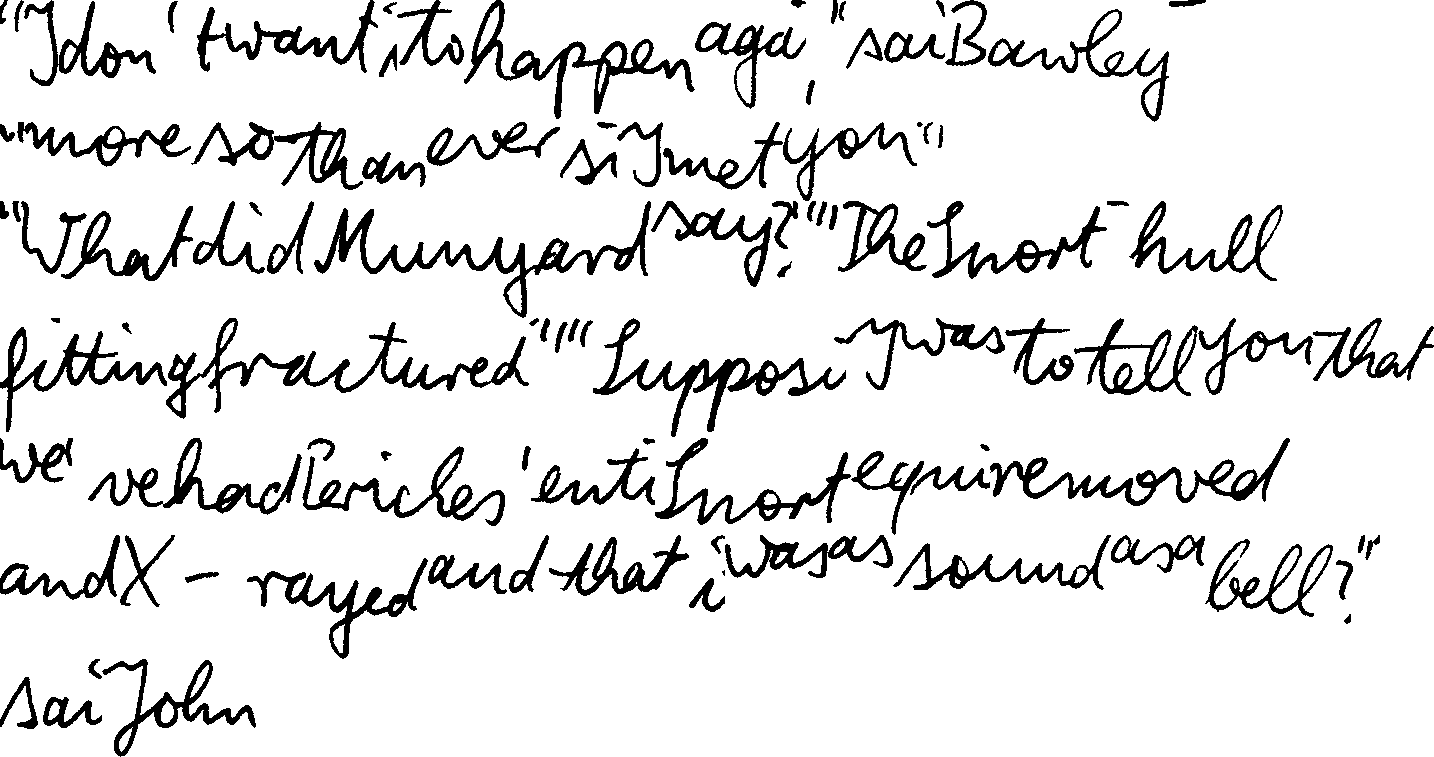 "I don't want it to happen aga," sai Bawley
"more so than ever si I met you"
"What did Munyard say?" "The Snort hull
fitting fractured" "Supposi I was to tell you that
we've had Neriches' enti Snort equi removed
and X-rayed and that i was as sound as a bell?"
sai John